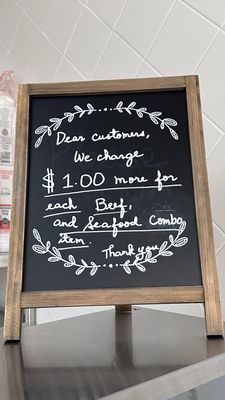 Dear customers,
We charge
$1.00 more for
each Beef,
and Seafood Combo
Item. Thank you